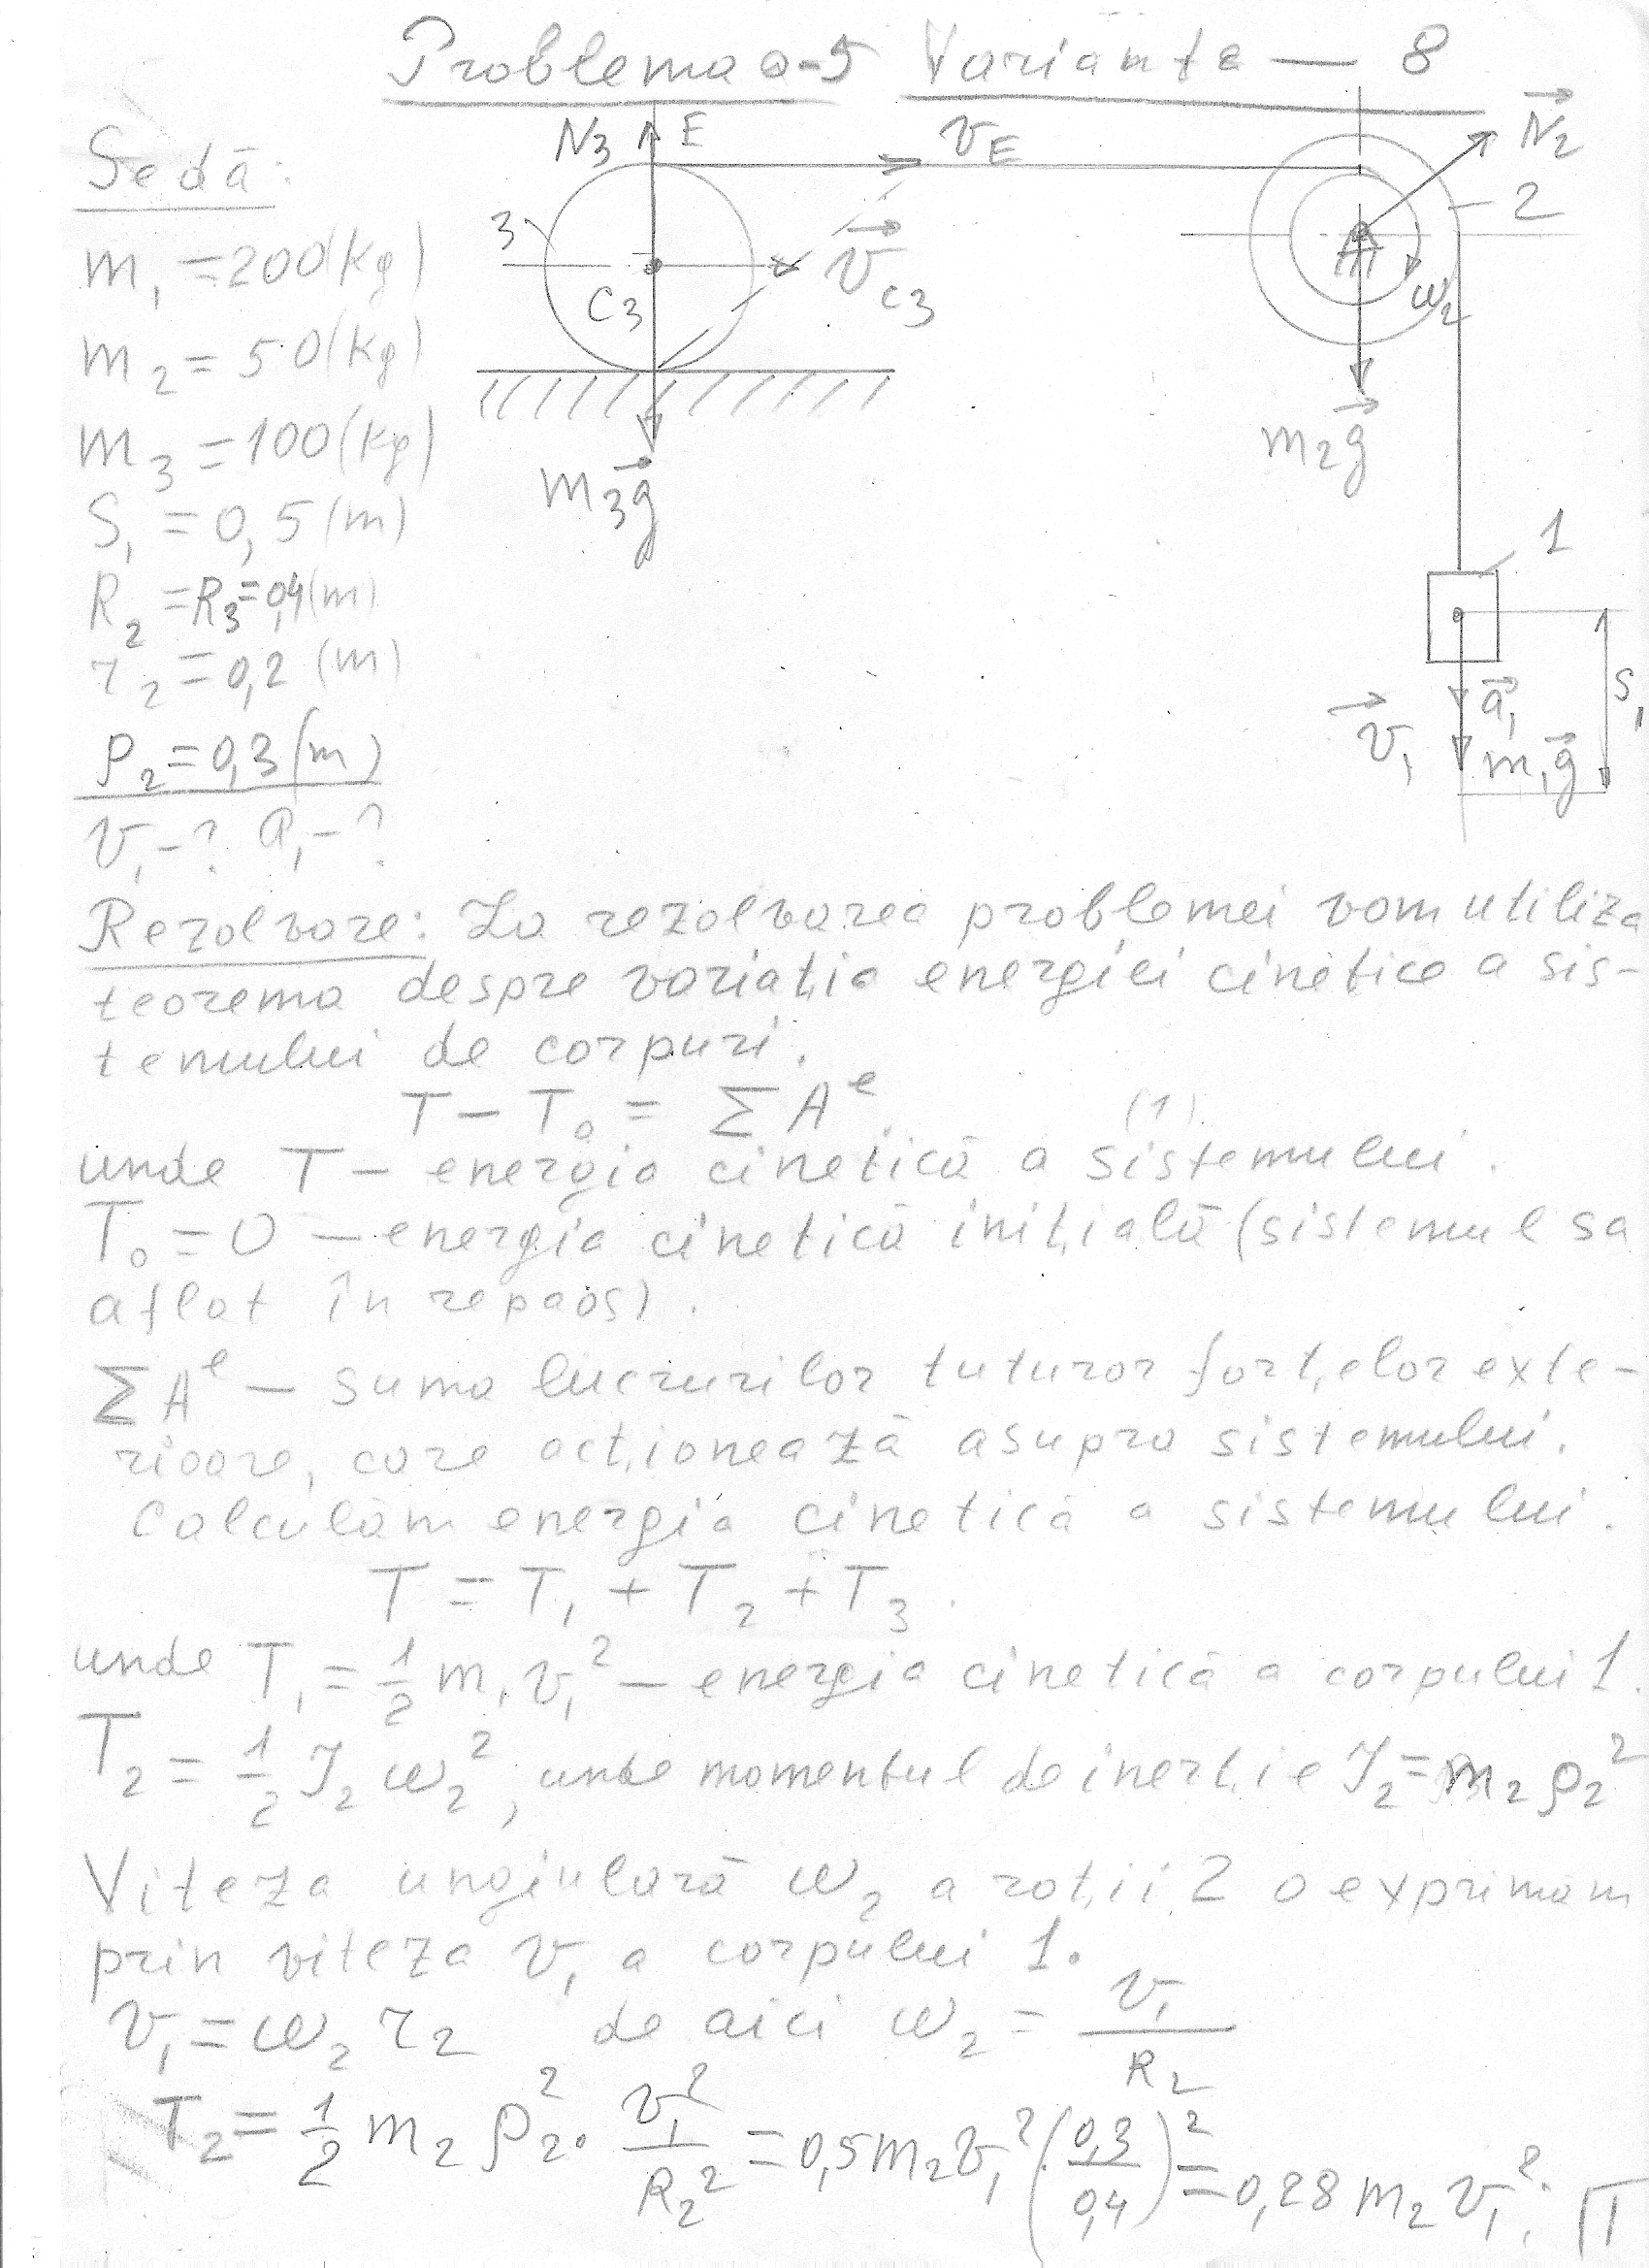 Problema D-5 Varianta — 8
Se dă:
m₁ = 200 (kg)
m₂ = 50 (kg)
m₃ = 100 (kg)
S₁ = 0,5 (m)
R₂ = R₃ = 0,4 (m)
r₂ = 0,2 (m)
ρ₂ = 0,3 (m)
v₁ - ? a₁ - ?
N₃
E
v_E
N₂
3
2
C₃
v_C3
ω₂
m₃g
m₂g
1
a₁
v₁
m₁g
S₁
Rezolvare: La rezolvarea problemei vom utiliza
teorema despre variația energiei cinetice a sis-
temului de corpuri.
T - T₀ = ΣAᵉ (1)
unde T — energia cinetică a sistemului.
T₀ = 0 — energia cinetică inițială (sistemul sa
aflat în repaos).
ΣAᵉ — suma lucrurilor tuturor forțelor exte-
rioare, care acționează asupra sistemului.
Calculăm energia cinetică a sistemului.
T = T₁ + T₂ + T₃.
unde T₁ = 1/2 m₁v₁² — energia cinetică a corpului 1.
T₂ = 1/2 J₂ω₂², unde momentul de inerție J₂ = m₂ρ₂²
Viteza unghiulară ω₂ a roții 2 o exprimam
prin viteza v₁ a corpului 1.
v₁ = ω₂r₂ de aici ω₂ = v₁/R₂
T₂ = 1/2 m₂ρ₂² · v₁²/R₂² = 0,5m₂v₁²(0,3/0,4)² = 0,28m₂v₁²;